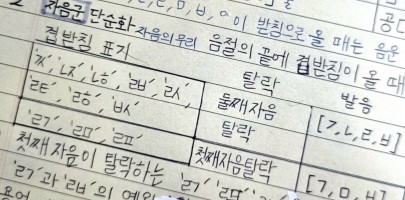 ㄹ, ㅁ, ㅂ, ㅇ이 받침으로 올 때는 음운
2 자음군 단순화 자음의 우리 음절의 끝에 겹받침이 올 때
겹받침 표기 탈락 발음
'ㄳ', 'ㄵ', 'ㄶ', 'ㄼ', 'ㄽ', 둘째자음 [ㄱ, ㄴ, ㄹ, ㅂ]
'ㄾ', 'ㅀ', 'ㅄ' 탈락
'ㄺ', 'ㄻ', 'ㄿ' 첫째자음탈락 [ㄱ, ㅁ, ㅂ]
첫째 자음이 탈락하는 'ㄺ', 'ㄻ',
용언 'ㄺ'과 'ㄼ'의 예외